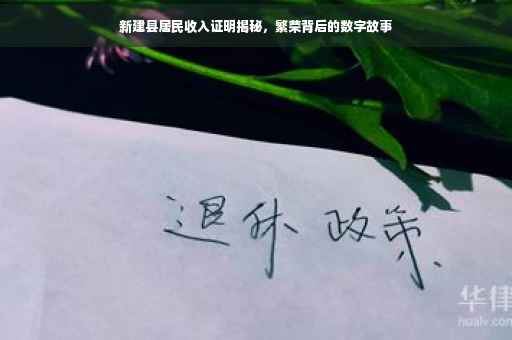 新建县居民收入证明揭秘，繁荣背后的数字故事
退休 政策
华律
hualv.com